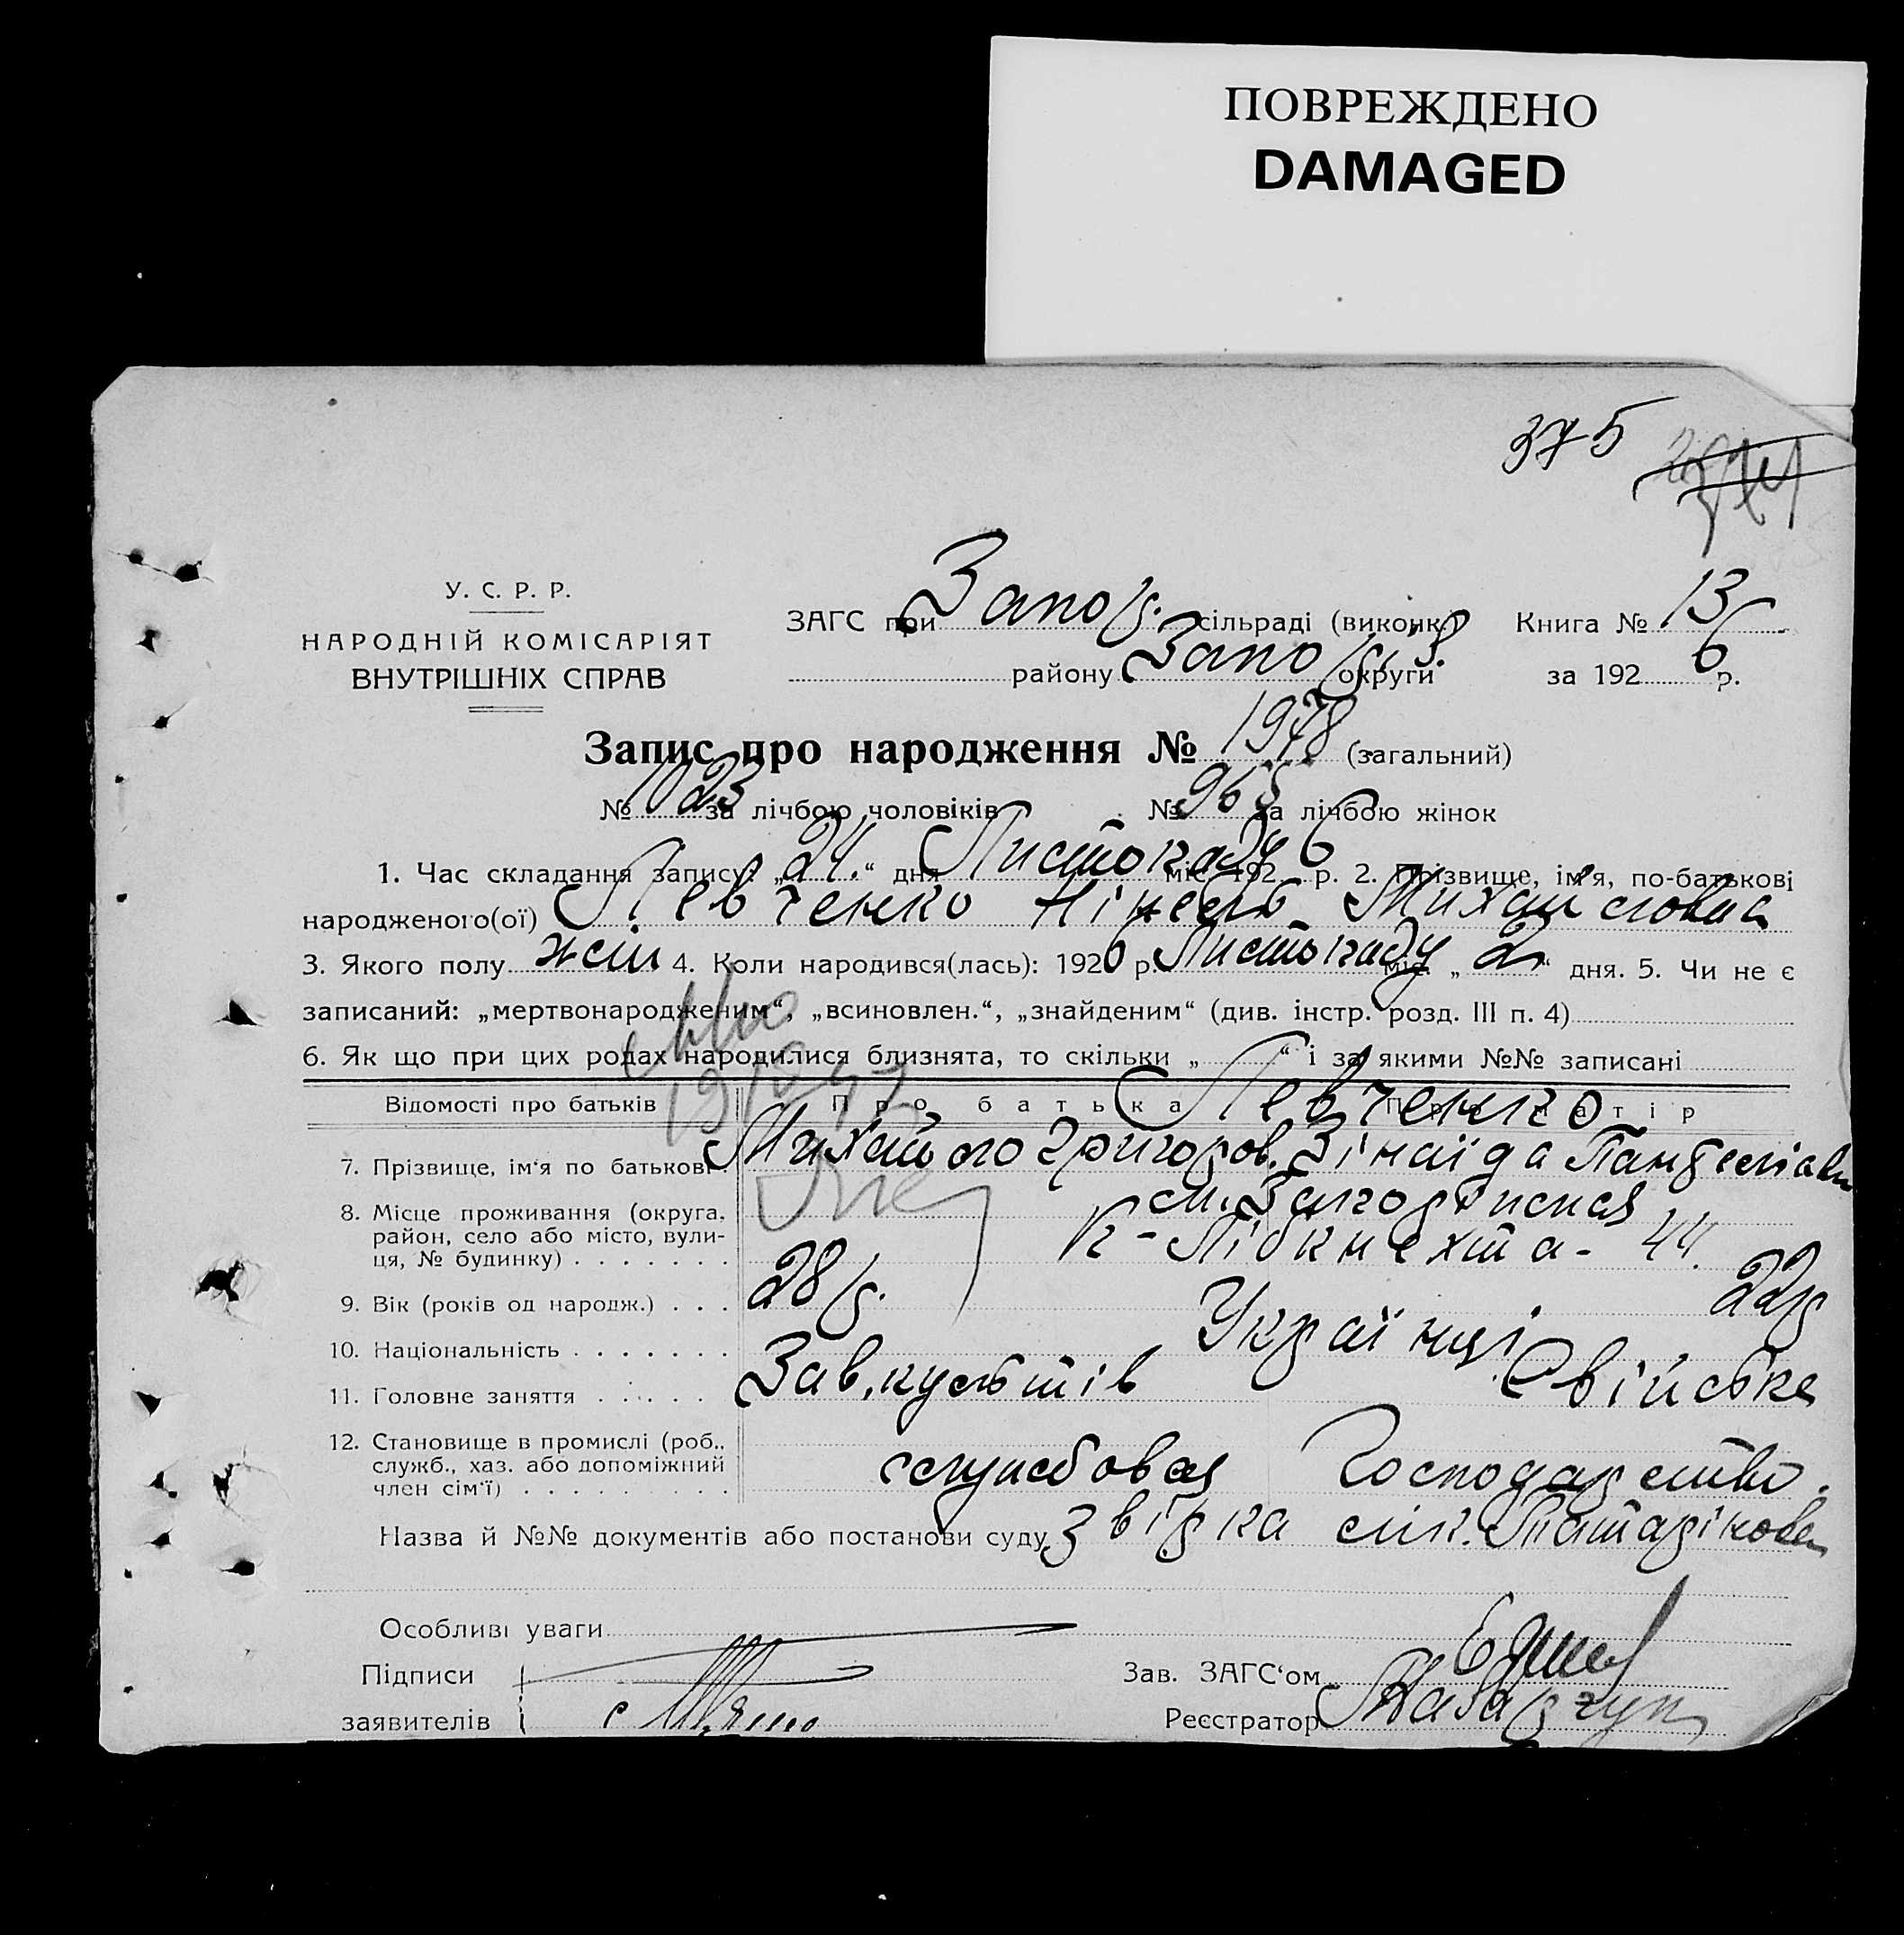 ПОВРЕЖДЕНО
DAMAGED
375
У. С. Р. Р.
НАРОДНІЙ КОМІСАРІЯТ
ВНУТРІШНІХ СПРАВ
ЗАГС при Запор. сільраді (виконк.) Книга № 13
району Запоріз. округи за 1926 р.
Запис про народження № 1978 (загальний)
№ 1023 за лічбою чоловіків № 965 за лічбою жінок
1. Час складання запису: „24“ дня Листопаду міс. 1926 р. 2. Прізвище, ім'я, по-батькові
народженого(ої) Левченко Нінель Михайловна
3. Якого полу жін 4. Коли народився(лась): 1926 р. Листопаду міс. „2“ дня. 5. Чи не є
записаний: „мертвонародженим“, „всиновлен.“, „знайденим“ (див. інстр. розд. III п. 4)
6. Як що при цих родах народилися близнята, то скільки „ “ і за якими №№ записані
Відомості про батьків Про батька Про матір
Левченко
7. Прізвище, ім'я по батькові. Михайло Григоров. Зінаїда
8. Місце проживання (округа, район, село або місто, вулиця, № будинку) м. Запоріжжя
К-Лібкнехта-44.
9. Вік (років од народж.) 28 р. 22 р
10. Національність Українці
11. Головне заняття Зав. культів Свійське
12. Становище в промислі (роб., служб., хаз. або допоміжний член сім'ї) службовая Господарство.
Назва й №№ документів або постанови суду Звірка
Особливі уваги
Підписи
заявителів
Зав. ЗАГС‘ом
Реєстратор